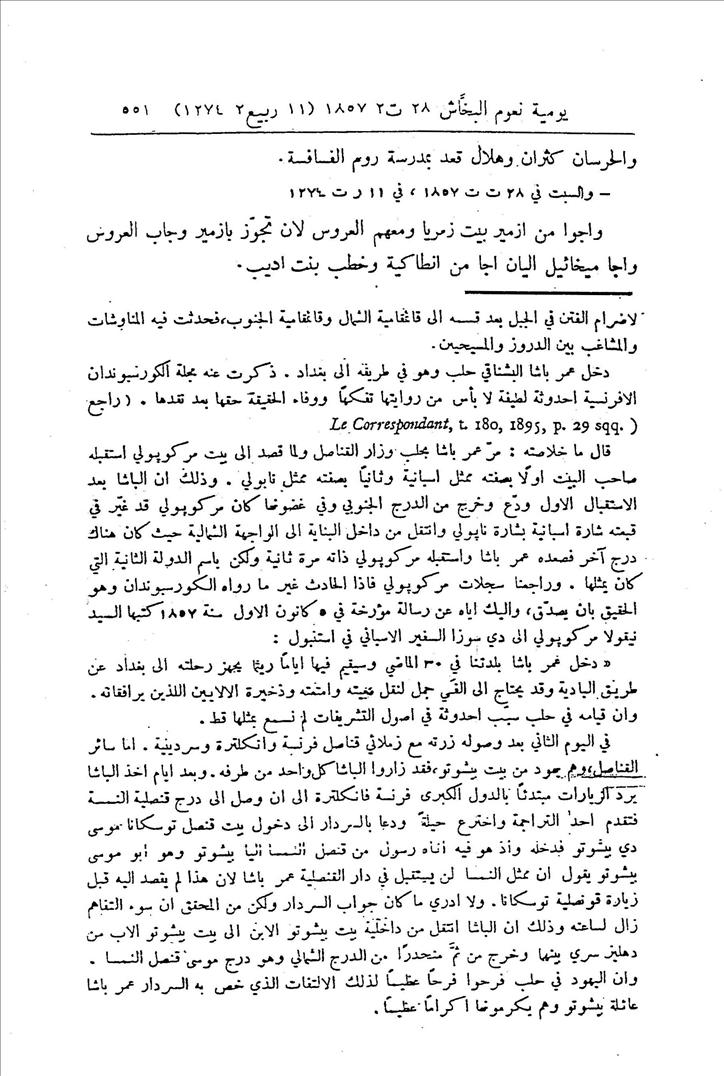 يومية نعوم البخَّاش ٢٨ ت٢ ١٨٥٧ (١١ ربيع٢ ١٢٧٤) ٥٥١
والحرسان كثران وهلال قعد بمدرسة روم القسافسة.
– والسبت في ٢٨ ت ت ١٨٥٧، في ١١ ر ت ١٢٧٤
واجوا من ازمير بيت زمريا ومعهم العروس لان تجوّز بازمير وجاب العروس
واجا ميخائيل اليان اجا من انطاكية وخطب بنت اديب.
لاضرام الفتن في الجبل بعد قسمه الى قائمقامية الشمال وقائمقامية الجنوب، فحدثت فيه المناوشات
والمشاغب بين الدروز والمسيحيين.
دخل عمر باشا البشناقي حلب وهو في طريقه الى بغداد. ذكرت عنه مجلة الكورسبوندان
الافرنسية احدوثة لطيفة لا بأس من روايتها تفكهاً ووفاء الحقيقة حقها بعد نقدها. (راجع
Le Correspondant, t. 180, 1895, p. 29 sqq. )
قال ما خلاصته: مرّ عمر باشا بحلب وزار القناصل ولما قصد الى بيت مركوبولي استقبله
صاحب البيت اولًا بصفته ممثل اسبانية وثانياً بصفته ممثل نابولي. وذلك ان الباشا بعد
الاستقبال الاول ودّع وخرج من الدرج الجنوبي وفي غضونها كان مركوبولي قد غيّر في
قبعته شارة اسبانية بشارة ناپولي وانتقل من داخل البناية الى الواجهة الشمالية حيث كان هناك
درج آخر فصعده عمر باشا واستقبله مركوبولي ذاته مرة ثانية ولكن باسم الدولة الثانية التي
كان يمثلها. وراجعنا سجلات مركوپولي فاذا الحادث غير ما رواه الكورسبوندان وهو
الحقيق بان يصدّق، واليك اياه عن رسالة مؤرخة في ٥ كانون الاول سنة ١٨٥٧ كتبها السيد
نيقولا مركوپولي الى دي سوزا السفير الاسباني في استنبول:
« دخل عمر باشا بلدتنا في ٣٠ الماضي وسيقيم فيها اياماً ريثما يجهز رحلته الى بغداد عن
طريق البادية وقد يحتاج الى الفَي جمل لنقل معيته وامتعته وذخيرة الالايين اللذين يرافقانه.
وان قيامه في حلب سبّب احدوثة في اصول التشريفات لم نسمع بمثلها قط.
في اليوم الثاني بعد وصوله زرته مع زملائي قناصل فرنسة وانكلترة وسردينية. اما سائر
القناصل، وهم يهود من بيت بيشوتو، فقد زاروا الباشا كل واحد من طرفه. وبعد ايام اخذ الباشا
يرد الزيارات مبتدئاً بالدول الكبرى فرنسة فانكلترة الى ان وصل الى درج قنصلية النمسة
فتقدم احد التراجمة واخترع حيلةً ودعا بالسردار الى دخول بيت قنصل توسكانا موسى
دي بيشوتو فدخله واذ هو فيه أتاه رسول من قنصل النمسا ايليا بيشوتو وهو ابو موسى
بيشوتو يقول ان ممثل النمسا لن يستقبل في دار القنصلية عمر باشا لان هذا لم يقصد اليه قبل
زيارة قونصلية توسكانا. ولا ادري ما كان جواب السردار ولكن من المحقق ان سوء التفاهم
زال لساعته وذلك ان الباشا انتقل من داخلية بيت بيشوتو الابن الى بيت بيشوتو الاب من
دهليز سري بينها وخرج من ثمَّ منحدرًا من الدرج الشمالي وهو درج موسى قنصل النمسا.
وان اليهود في حلب فرحوا فرحاً عظيماً لذلك الالتفات الذي خص به السردار عمر باشا
عائلة بيشوتو وهم يكرمونها اكراماً عظيماً.